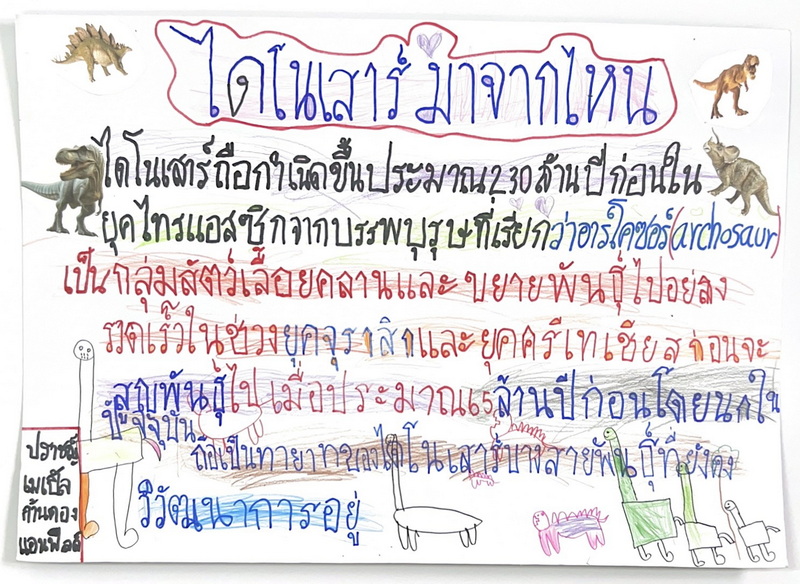 ไดโนเสาร์มาจากไหน
ไดโนเสาร์ถือกำเนิดขึ้นประมาณ230ล้านปีก่อนใน
ยุคไทรแอสซิกจากบรรพบุรุษที่เรียกว่าอาร์โคซอร์(archosaur)
เป็นกลุ่มสัตว์เลื้อยคลานและขยายพันธุ์ไปอย่าง
รวดเร็วในช่วงยุคจุราสิกและยุคครีเทเชียสก่อนจะ
สูญพันธุ์ไปเมื่อประมาณ65ล้านปีก่อนโดยนกใน
ปัจจุบัน
ถือเป็นทายาทของไดโนเสาร์บางสายพันธุ์ที่ยังคง
วิวัฒนาการอยู่
ปราชญ์
เมเปิ้ล
ก้านตอง
แอนฟิลด์